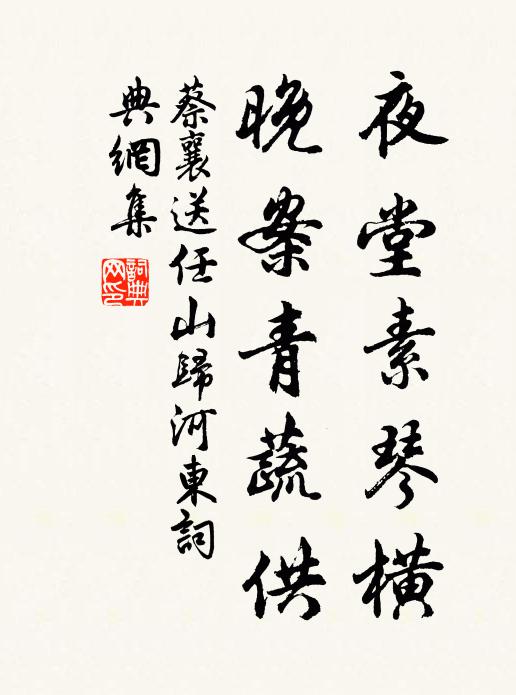 夜堂素琴橫
晚案青蔬供
蔡襄送任山歸河東詞
典網集
詞典網印